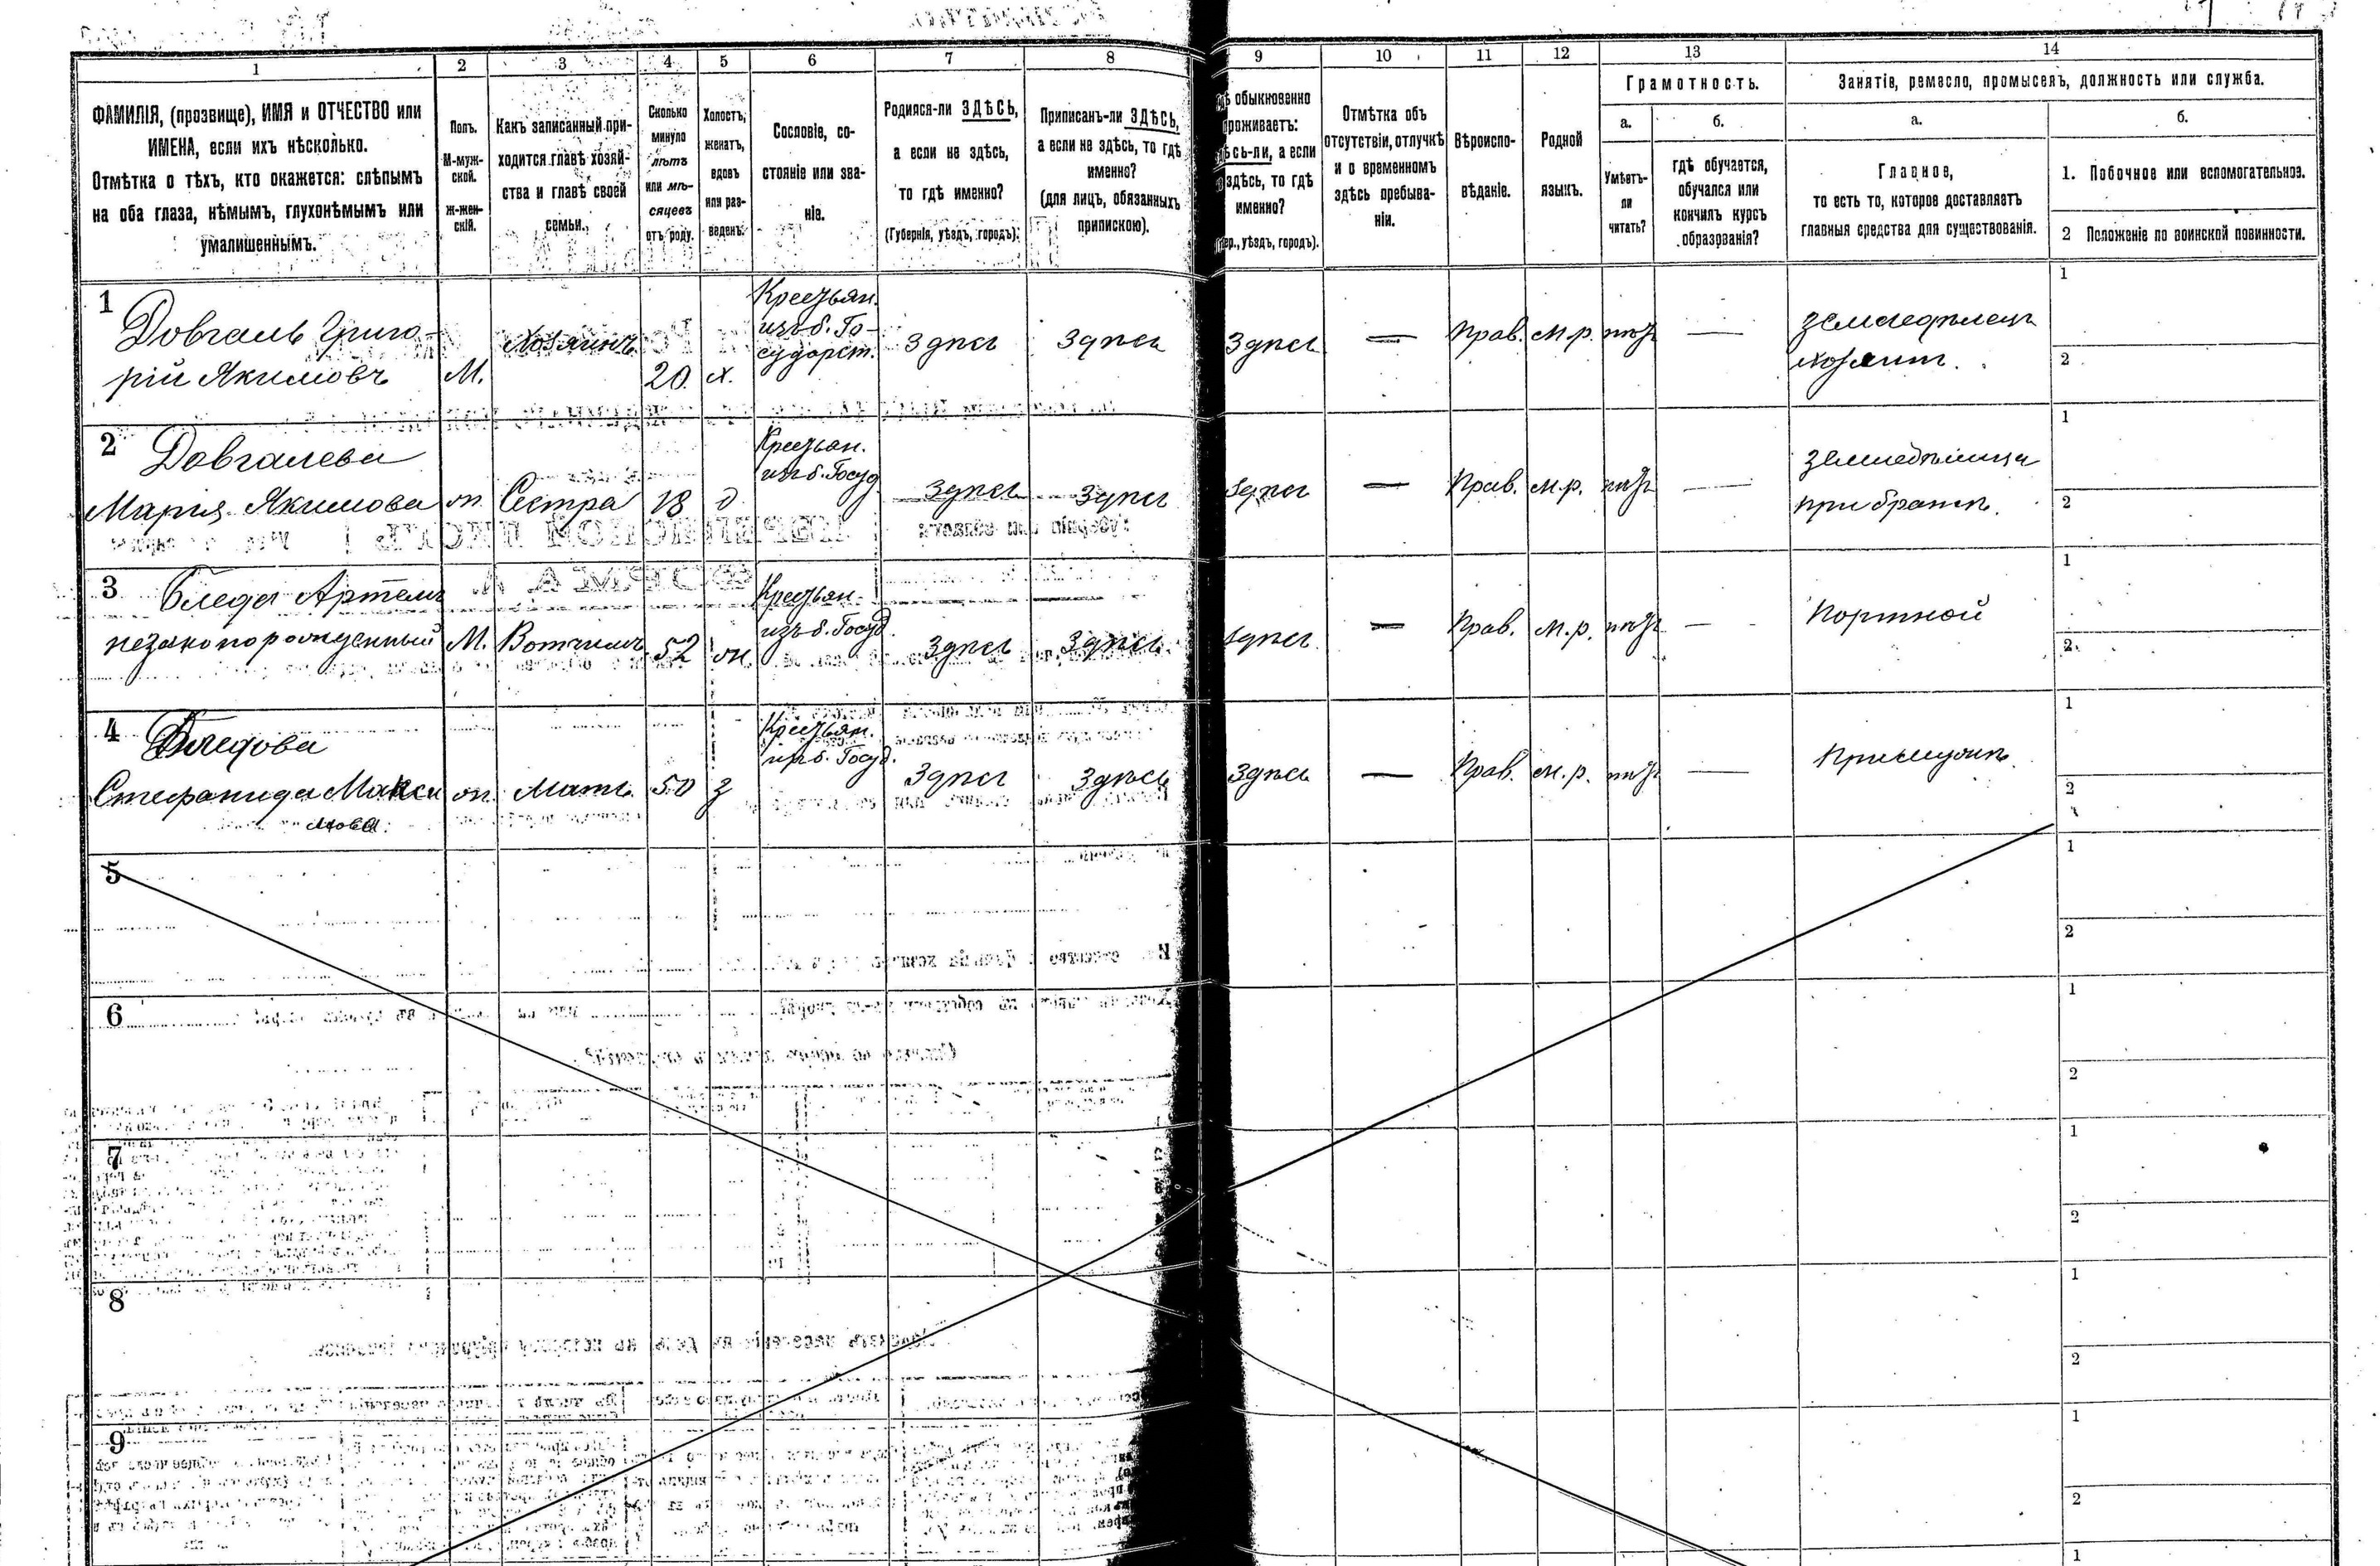 1
2
3
4
5
6
7
8
9
10
11
12
13
14
ФАМИЛІЯ, (прозвище), ИМЯ и ОТЧЕСТВО или
ИМЕНА, если ихъ нѣсколько.
Отмѣтка о тѣхъ, кто окажется: слѣпымъ
на оба глаза, нѣмымъ, глухонѣмымъ или
умалишеннымъ.
Полъ.
М-муж-
ской.
ж-жен-
скій.
Какъ записанный при-
ходится главѣ хозяй-
ства и главѣ своей
семьи.
Сколько
минуло
лѣтъ
или мѣ-
сяцевъ
отъ роду.
Холостъ,
женатъ,
вдовъ
или раз-
веденъ.
Сословіе, со-
стояніе или зва-
ніе.
Родился-ли ЗДѢСЬ,
а если не здѣсь,
то гдѣ именно?
(Губернія, уѣздъ, городъ).
Приписанъ-ли ЗДѢСЬ,
а если не здѣсь, то гдѣ
именно?
(для лицъ, обязанныхъ
припискою).
обыкновенно
роживаетъ:
сь-ли, а если
здѣсь, то гдѣ
именно?
уѣздъ, городъ).
Отмѣтка объ
отсутствіи, отлучкѣ
и о временномъ
здѣсь пребыва-
ніи.
Вѣроиспо-
вѣданіе.
Родной
языкъ.
Грамотность.
а.
Умѣетъ-
ли
читать?
б.
гдѣ обучается,
обучался или
кончилъ курсъ
образованія?
Занятіе, ремесло, промыселъ, должность или служба.
а.
Главное,
то есть то, которое доставляетъ
главныя средства для существованія.
б.
1. Побочное или вспомогательное.
2 Положеніе по воинской повинности.
1
Довгаль Григо-
рій Якимовъ
М.
Хозяинъ
20.
х.
Крестьян.
изъ б. Го-
сударст.
Здѣсь
Здѣсь
Здѣсь
—
Прав.
М.р.
нѣтъ
—
земледѣлецъ
хозяинъ.
1
2
2
Довгалева
Марія Якимова
ж.
Сестра
18
д
Крестьян.
изъ б. Госуд
Здѣсь
Здѣсь
Здѣсь
—
Прав.
М.р.
нѣтъ
—
земледѣлица
при братѣ.
1
2
3
Бледа Артемъ
незаконорожденный
М.
Вотчимъ
52
ж.
Крестьян.
изъ б. Госуд.
Здѣсь
Здѣсь
Здѣсь
—
Прав.
М.р.
нѣтъ
—
Портной
1
2
4
Бледова
Стефанида Макси
мова
ж.
Мать
50
з
Крестьян.
изъ б. Госуд.
Здѣсь
Здѣсь
Здѣсь
—
Прав.
М.р.
нѣтъ
—
При мужѣ.
1
2
5
1
2
6
1
2
7
1
2
8
1
2
9
1
2
1